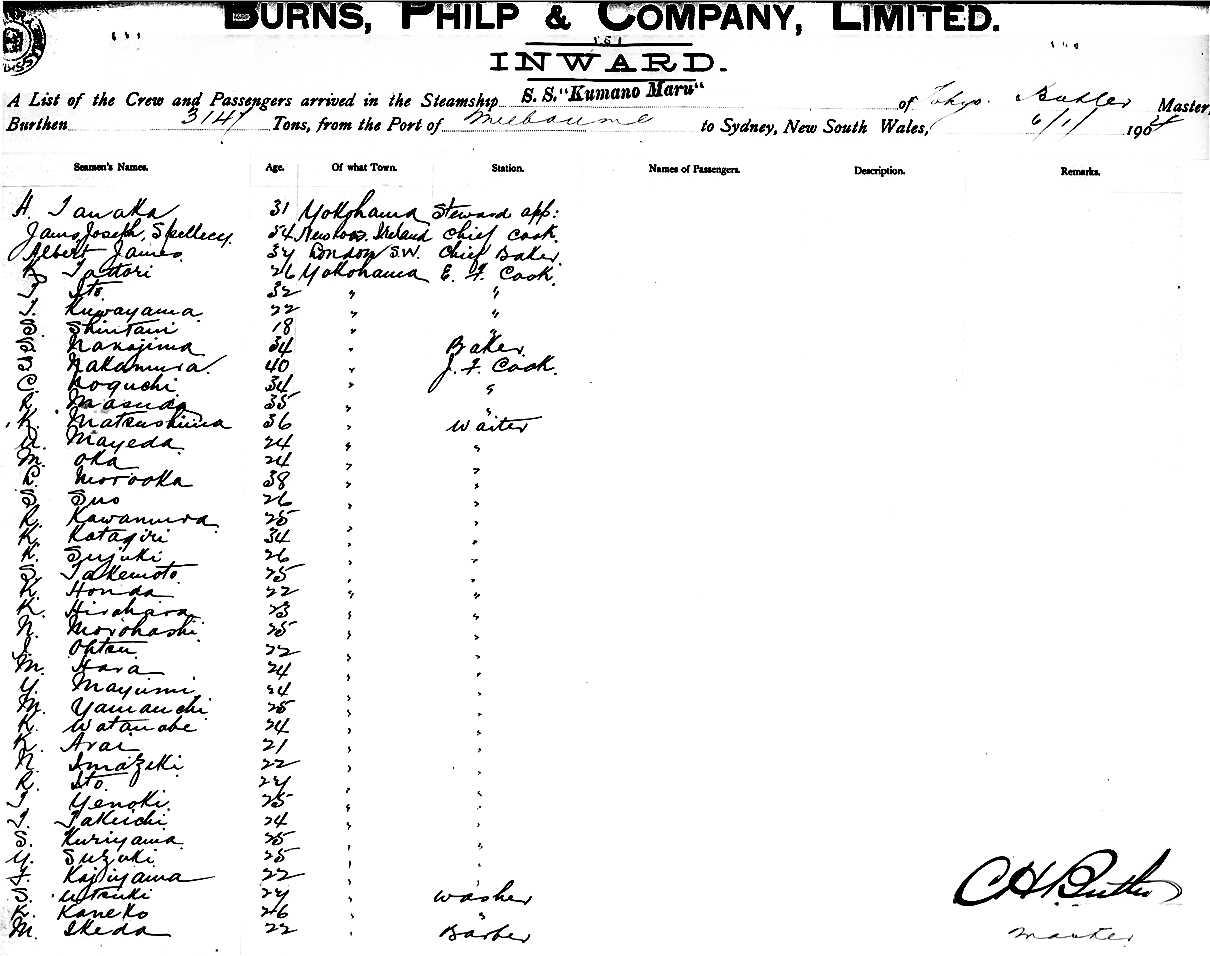 BURNS, PHILP & COMPANY, LIMITED.
INWARD.
A List of the Crew and Passengers arrived in the Steamship S. S. "Kumano Maru" of Butler Master,
Burthen 3147 Tons, from the Port of Melbourne to Sydney, New South Wales, 6/1/ 190
Seamen's Names. Age. Of what Town. Station. Names of Passengers. Description. Remarks.
H. Tanaka 31 Yokohama Steward app:
James Joseph Spellecy 54 Ireland Chief Cook.
Albert James London S.W. Chief Baker.
K. Tatori 26 Yokohama E. F. Cook.
Ito 32 " "
Kuwayama 22 " "
S. Shintani 18 " "
Nakajima 34 " Baker
Nakamura 40 " J. F. Cook.
Noguchi 34 " "
R. Masuda 35 " "
K. Matsushima 36 " Waiter
Mayeda 24 " "
M. Oka 24 " "
Morooka 38 " "
S. Suo 26 " "
R. Kawamura 25 " "
K. Katagiri 34 " "
K. Sujuki 26 " "
S. Takemoto 25 " "
K. Honda 22 " "
K. Hirahara 23 " "
N. Morohashi 25 " "
Ohtsu 22 " "
M. Hara 24 " "
Y. Mayumi 24 " "
M. Yamauchi 25 " "
K. Watanabe 24 " "
K. Arai 21 " "
N. Imazeki 22 " "
R. Ito 24 " "
Yenoki 25 " "
T. Takeichi 24 " "
S. Kuriyama 25 " "
Y. Suzuki 25 " "
Kajiyama 22 " "
Utsuki 24 " Washer
K. Kaneko 26 " "
M. Ikeda 22 " Barber
C H Butler
Master